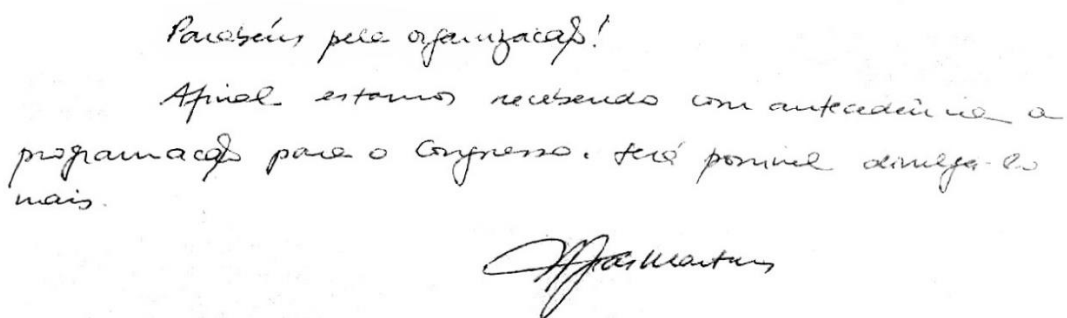 Parabéns pela organização!
Afinal estamos recebendo com antecedência a
programação para o Congresso. Será possível divulgá-lo
mais.
Martins